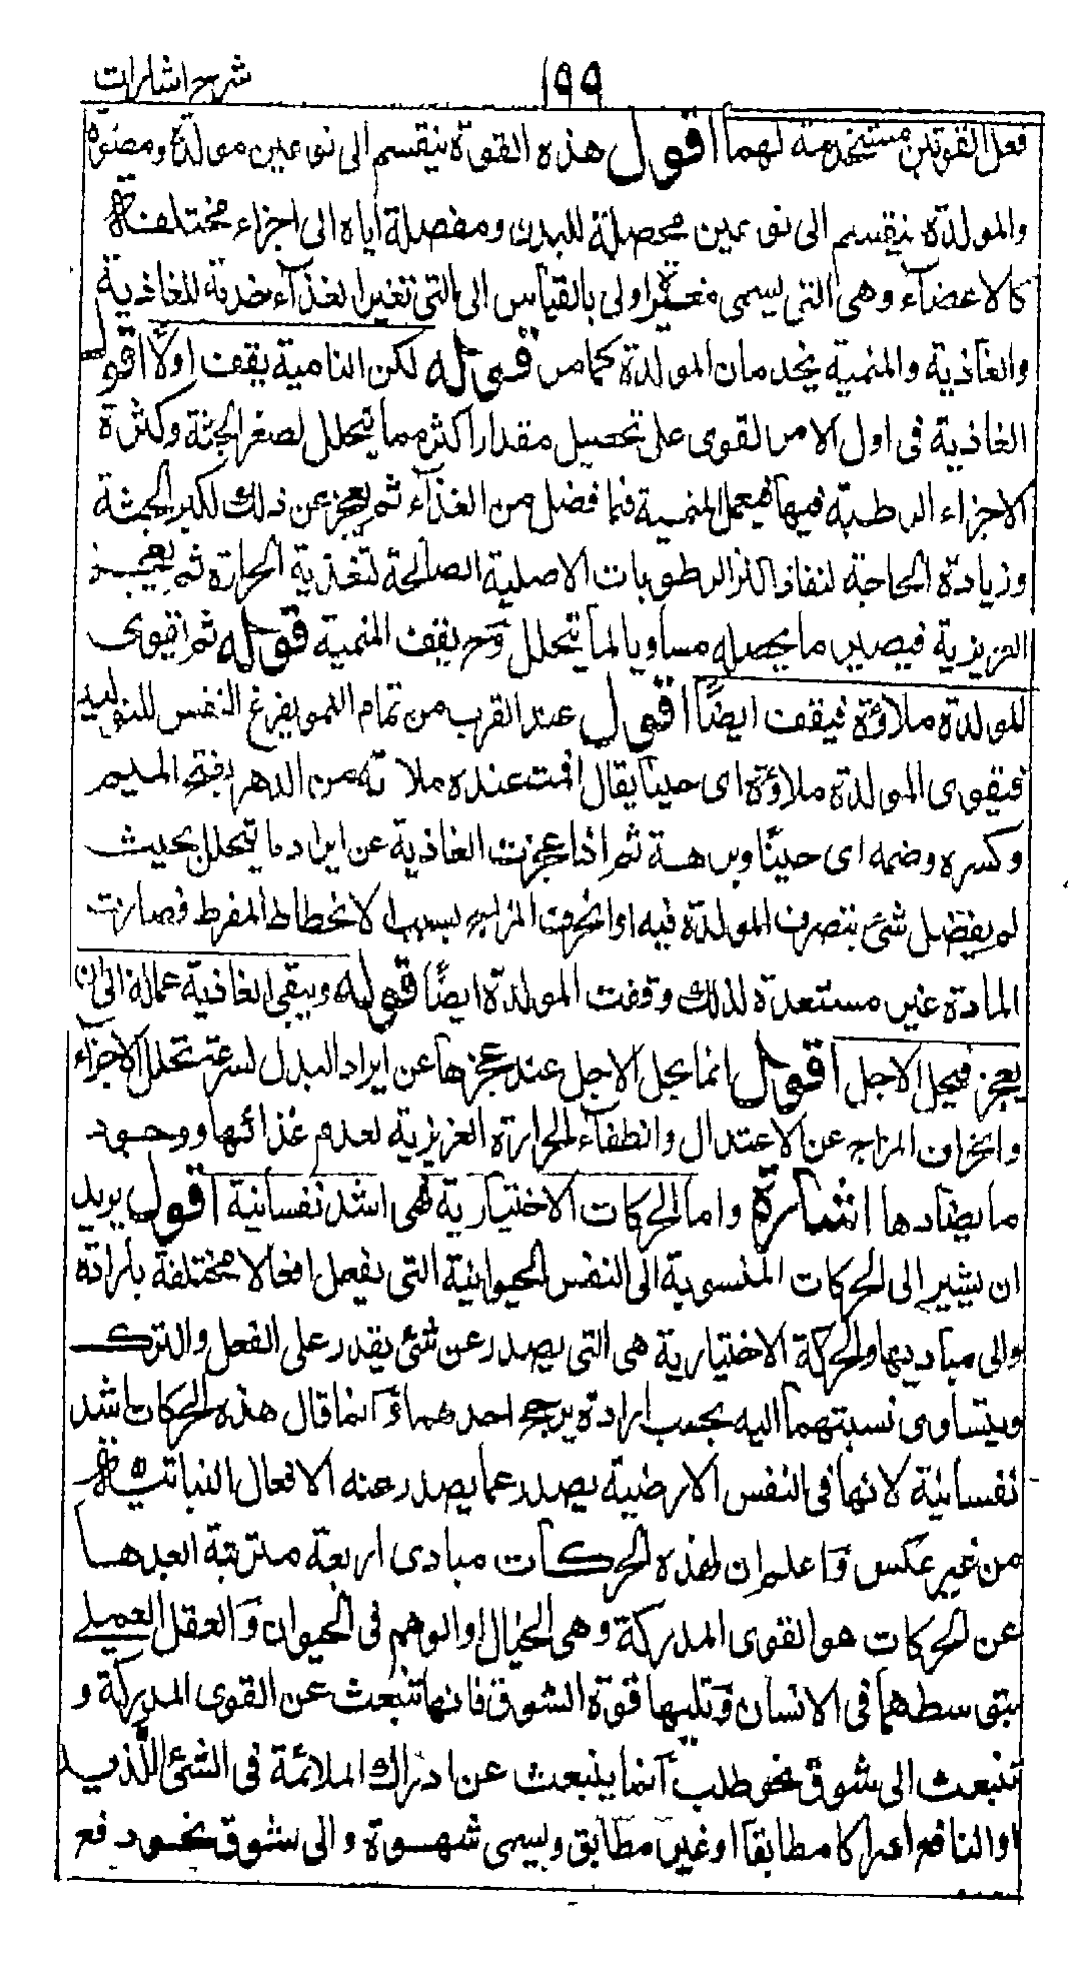 شرح اشارات
١٩٩
فعل القوتين مستخدمة لهما اقول هذه القوة ينقسم الى نوعين مولدة ومصورة
والمولدة ينقسم الى نوعين محصلة للبدن ومفصلة اياه الى اجزاء مختلفة
كالاعضآء وهى التى يسمى مغيرة اولى بالقياس الى التى تغير الغذآء خدمة للغاذية
والغاذية والمنمية يخدمان المولدة كما مر قوله لكن النامية يقف اولًا اقول
الغاذية فى اول الامر لقوى على تحصيل مقدار اكثر مما يتحلل لصغر الجثة وكثرة
الاجزاء الرطبة فيها فيعمل المنمية فيما فضل من الغذآء ثم يعجز عن ذلك لكبر الجثة
وزيادة الحاجة لنفاذ اكثر الرطوبات الاصلية الصالحة لتغذية الحرارة ثم يعجز
الغريزية فيصير ما يحصله مساويا لما يتحلل وح يقف المنمية قوله ثم اتقوى
للمولدة ملاؤة فيقف ايضًا اقول عند القرب من تمام النمو يفرغ النفس للتوليد
فيقوى المولدة ملاؤة اى حينا يقال اقمت عنده ملاؤة من الدهر بفتح الميم
وكسره وضمه اى حينًا وبرهة ثم اذا عجزت الغاذية عن ايراد ما يتحلل بحيث
لم يفضل شئ يتصرف المولدة فيه او انحرفت المزاج بسبب الانحطاط المفرط فصارت
المادة غير مستعدة لذلك وقفت المولدة ايضًا قوله ويبقى الغاذية عمالة الى ان
يعجز فيحل الاجل اقول انما يحل الاجل عند عجزها عن ايراد البدل لسرعة تحلل الاجزآء
وانحراف المزاج عن الاعتدال وانطفآء الحرارة الغريزية لعدم غذائها ووجود
ما يضادها اشارة واما الحركات الاختيارية فهى اشد نفسانية اقول يريد
ان يشير الى الحركات المنسوبة الى النفس الحيوانية التى يفعل افعالا مختلفة بارادة
والى مباديها والحركة الاختيارية هى التى يصدر عن شئ يقدر على الفعل والترك
ويتساوى نسبتهما اليه بحسب ارادة يرجح احدهما وآنما قال هذه الحركات اشد
نفسانية لانها فى النفس الارضية يصدر عما يصدر عنه الافعال النباتية
من غير عكس وَاعلم ان لهذه الحركات مبادى اربعة مترتبة ابعدها
عن الحركات هو القوى المدركة وهى الخيال او الوهم فى الحيوان وَالعقل العملى
بتوسطهما فى الانسان وَتليها قوة الشوق فانها تنبعث عن القوى المدركة و
تنبعث الى شوق نحو طلب آنما ينبعث عن ادراك الملائمة فى الشئ اللذيذ
او النافع ادراكا مطابقا او غير مطابق ويسمى شهوة والى شوق نحو دفع